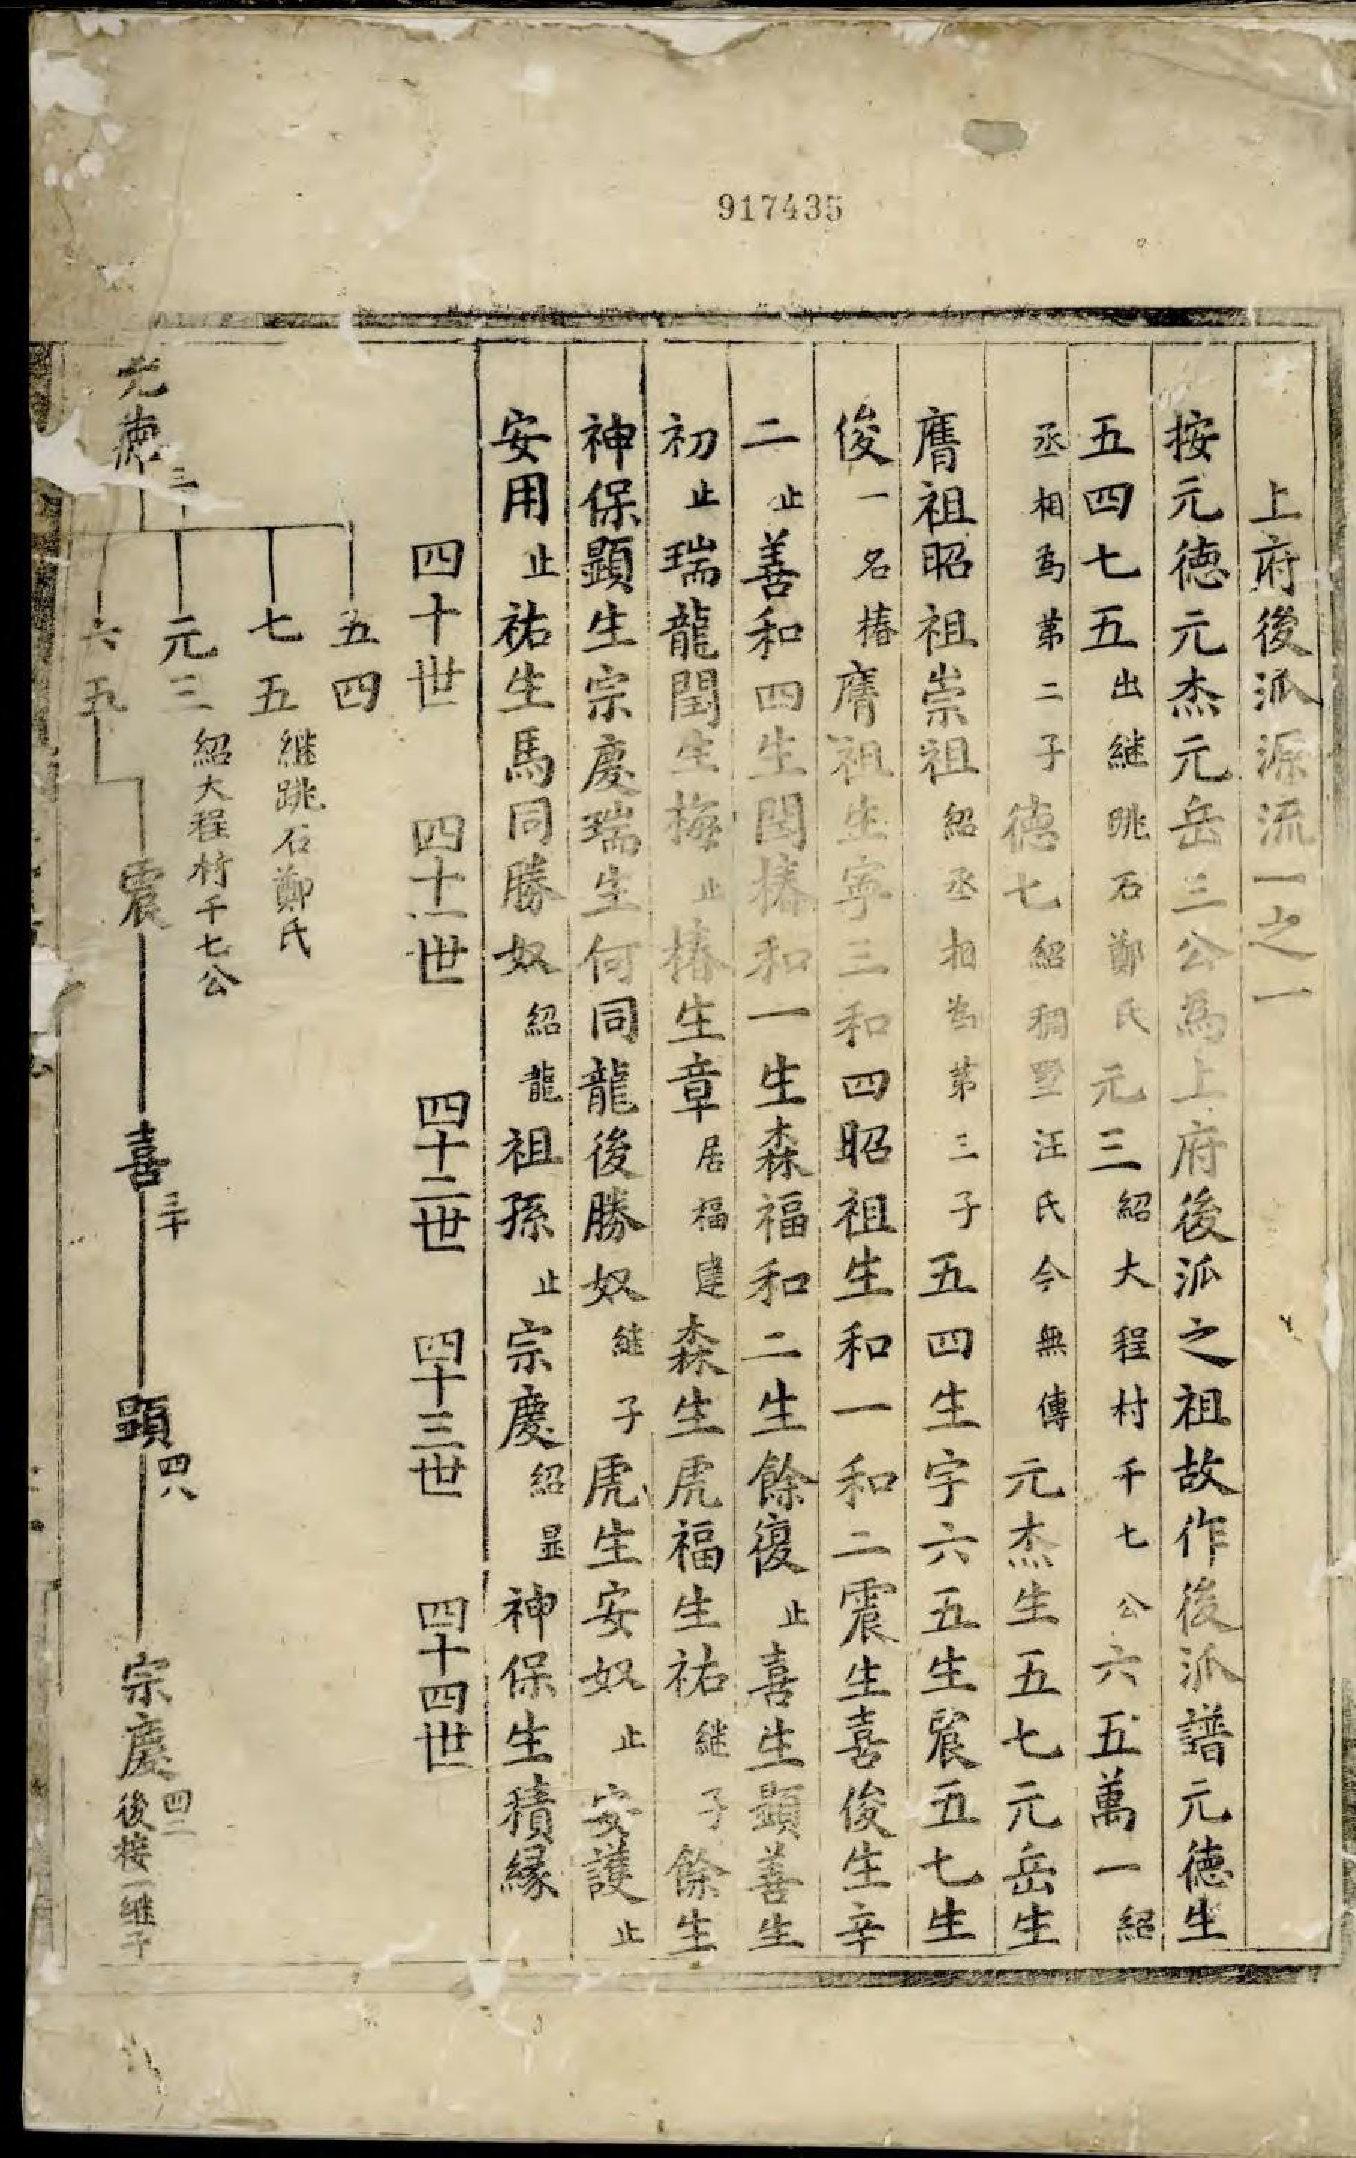 917435
上府後派源流一之一
按元德元杰元岳三公為上府後派之祖故作後派譜元德生
五四七五出継眺石鄭氏元三紹大程村千七公六五萬一紹
丞相為第二子德七紹稠墅汪氏今無傳元杰生五七元岳生
膺祖昭祖崇祖紹丞相為第三子五四生宇六五生震五七生
俊一名椿膺祖生寧三和四昭祖生和一和二震生喜俊生辛
二止善和四生閏椿和一生森福和二生餘復止喜生顕善生
初止瑞龍閏生梅止椿生章居福建森生虎福生祐継子餘生
神保顕生宗慶瑞生何同龍後勝奴継子虎生安奴止安護止
安用止祐生馬同勝奴紹龍祖孫止宗慶紹显神保生積縁
四十世 四十一世 四十二世 四十三世 四十四世
五四
七五継跳石鄭氏
元三紹大程村千七公
元德三十
六五 震 喜三十 顕四八 宗慶四二後接一継子